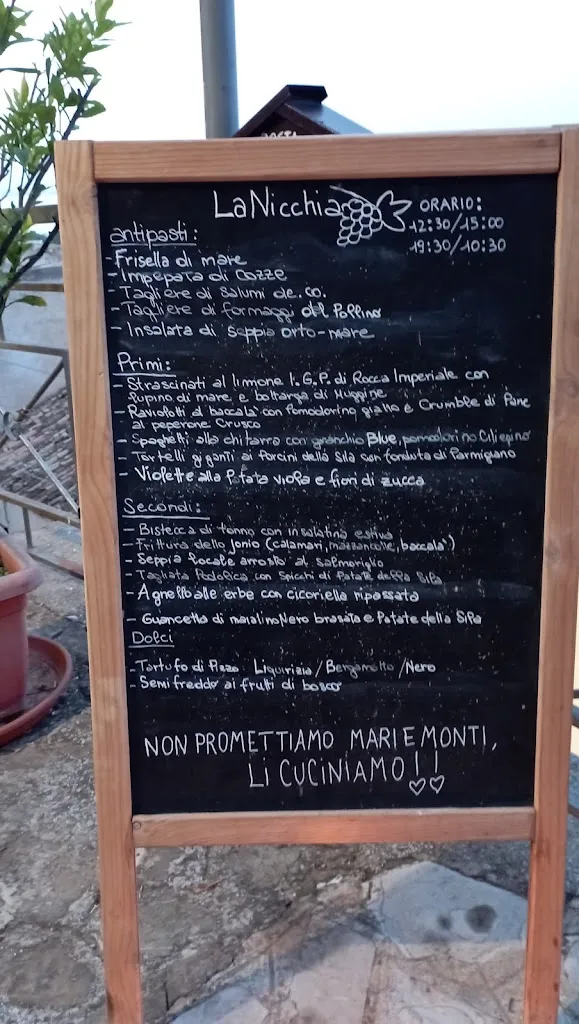 La Nicchia
ORARIO:
12:30/15:00
19:30/10:30
antipasti:
- Frisella di mare
- Impepata di cozze
- Tagliere di salumi de.co.
- Tagliere di formaggi del Pollino
- Insalata di seppia orto-mare
Primi:
- Strascinati al limone I.G.P. di Rocca Imperiale con
lupino di mare e bottarga di Muggine
- Raviolotti al baccalà con Pomodorino giallo e Crumble di Pane
al peperone Crusco
- Spaghetti alla chitarra con granchio Blue, pomodorino Ciliegino
- Tortelli giganti ai Porcini della Sila con fonduta di Parmigiano
- Violette alla Patata viola e fiori di zucca
Secondi:
- Bistecca di tonno con insalatina estiva
- Frittura dello Jonio (calamari, mazzancolle, baccalà)
- Seppia locale arrosto al salmoriglio
- Tagliata Podolica con Spicchi di Patate della Sila
- Agnello alle erbe con cicoriella ripassata
- Guancetta di maialino Nero brasata e Patate della Sila
Dolci
- Tartufo di Pizzo Liquirizia / Bergamotto / Nero
- Semifreddo ai frutti di bosco
NON PROMETTIAMO MARI E MONTI,
LI CUCINIAMO!!